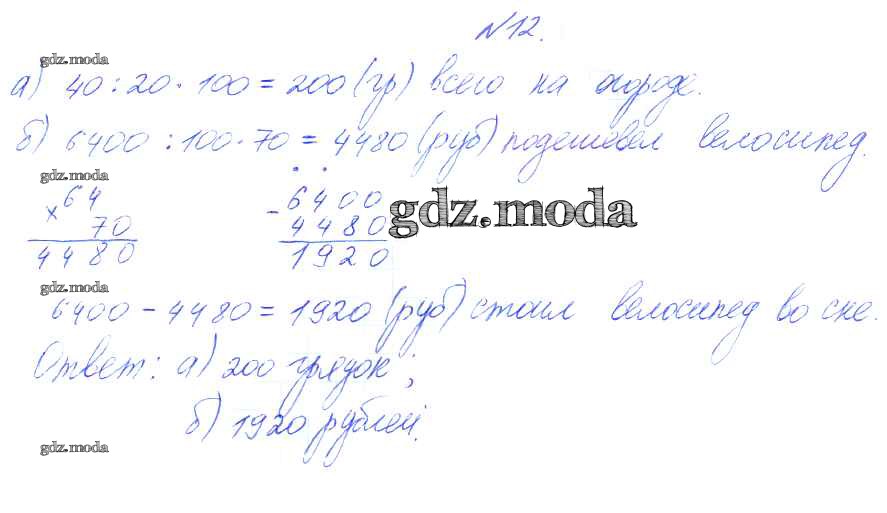 №12.
gdz.moda
а) 40 : 20 · 100 = 200 (гр) всего на огороде.
б) 6400 : 100 · 70 = 4480 (руб) подешевел велосипед.
gdz.moda
× 64
70
4480
- 6400
4480
1920
gdz.moda
gdz.moda
6400 - 4480 = 1920 (руб) стоил велосипед во сне.
Ответ: а) 200 грядок;
б) 1920 рублей.
gdz.moda